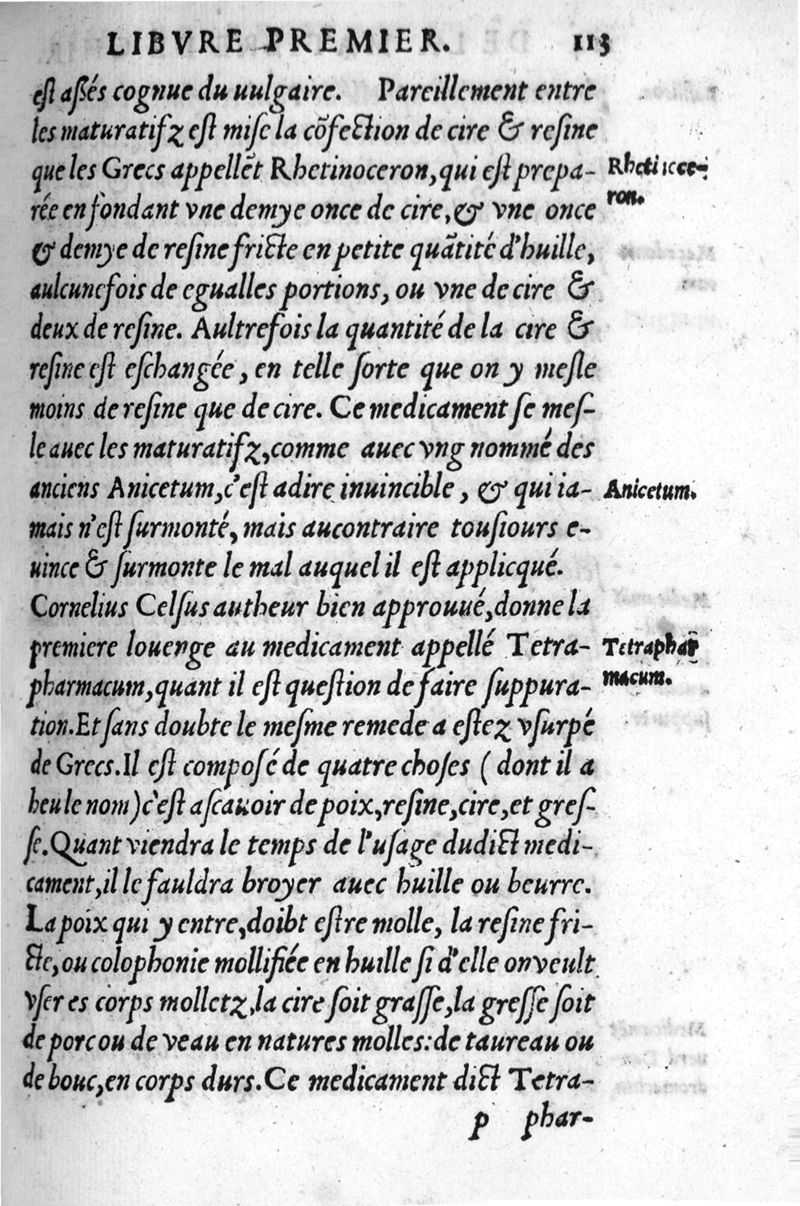 LIBVRE PREMIER. 113
est assés cognue du uulgaire. Pareillement entre
les maturatifz est mise la cõfection de cire & resine
que les Grecs appellẽt Rhetinoceron, qui est prepa-
Rhetinoce-
ron.
rée en fondant vne demye once de cire, & vne once
& demye de resine fricte en petite quãtité d'huille,
aulcunefois de egualles portions, ou vne de cire &
deux de resine. Aultrefois la quantité de la cire &
resine est eschangée, en telle sorte que on y mesle
moins de resine que de cire. Ce medicament se mes-
le auec les maturatifz, comme auec vng nommé des
anciens Anicetum, c'est adire inuincible, & qui ia-
Anicetum.
mais n'est surmonté, mais aucontraire tousiours e-
uince & surmonte le mal auquel il est applicqué.
Cornelius Celsus autheur bien approuué, donne la
premiere louenge au medicament appellé Tetra-
Tetraphar
macum.
pharmacum, quant il est question de faire suppura-
tion. Et sans doubte le mesme remede a estez vsurpé
de Grecs. Il est composé de quatre choses ( dont il a
heu le nom) c'est ascauoir de poix, resine, cire, et gres-
se. Quant viendra le temps de l'usage dudict medi-
cament, il le fauldra broyer auec huille ou beurre.
La poix qui y entre, doibt estre molle, la resine fri-
cte, ou colophonie mollifiée en huille si d'elle on veult
vser es corps molletz, la cire soit grasse, la gresse soit
de porc ou de veau en natures molles: de taureau ou
de bouc, en corps durs. Ce medicament dict Tetra-
p phar-